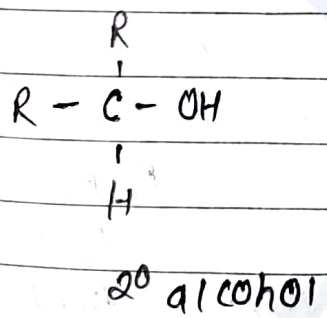 R
R - C - OH
H
2° alcohol